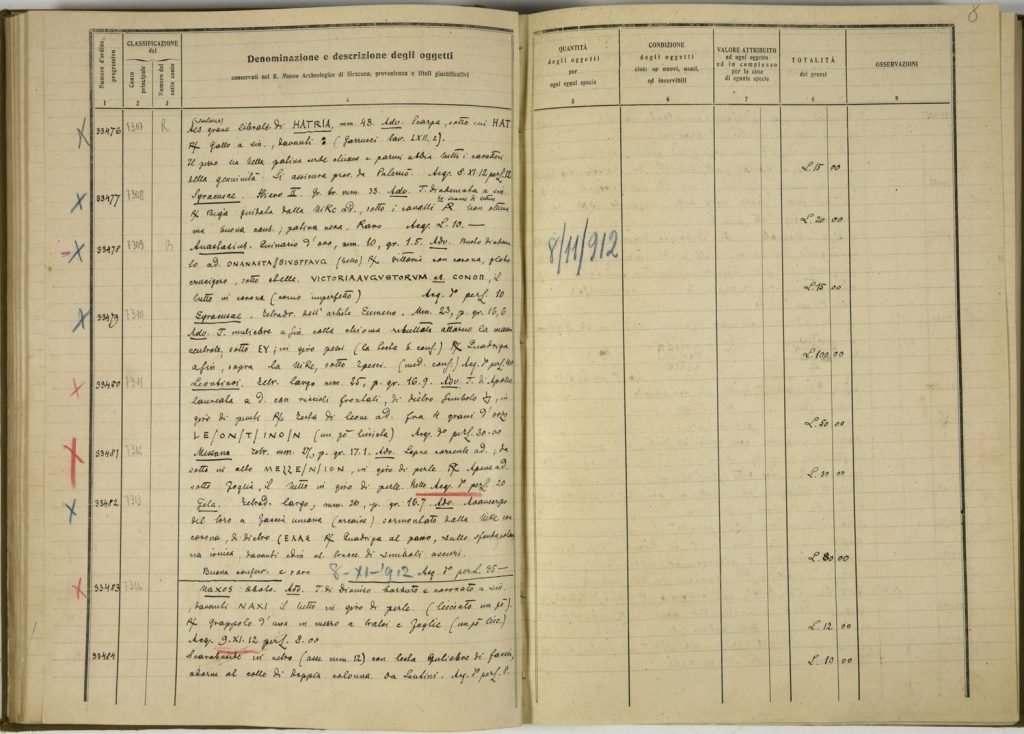 8
Numero d'ordine progressivo
CLASSIFICAZIONE del
Conto principale
Numero del sotto conto
Denominazione e descrizione degli oggetti
conservati nel R. Museo Archeologico di Siracusa, provenienza e titoli giustificativi
1 2 3 4
QUANTITÀ degli oggetti per ogni specie
CONDIZIONE degli oggetti cioè: se nuovi, usati, od inservibili
VALORE ATTRIBUITO ad ogni oggetto ed in complesso per le cose di eguale specie
TOTALITÀ dei prezzi
OSSERVAZIONI
5 6 7 8 9
33476 7307 R As grave librale di HATRIA, mm. 48. Adv. Scarpa, sotto cui HAT
R/ Gallo a sin., davanti : (Garrucci Tav. LXII. 2).
Il pezzo ha bella patina verde chiara e parmi abbia tutti i caratteri
della genuinità. Si assicura prov. da Palermo. Acq. 8. XI. 12 per L. 12
L. 15 00
33477 7308 Syracusae. Hiero II. Gr. br. mm. 33. Adv. T. diademata a sin.
R/ Biga guidata dalla Nike a d., sotto i cavalli non ottima
ma buona cons.; patina nera. Raro Acq. L. 10. —
L. 20 00
33478 7309 B Anastasius. Quinario d'oro, mm. 10, gr. 1.5. Adv. Busto diadema-
to a d. DNANASTASIVSPPAVG (bello) R/ Vittoria con corona, globo
crucigero, sotto stelle. VICTORIAAVGVSTORVM CONOB, il
tutto in corona (conio imperfetto) Acq. per L. 10
8/11/912
L. 15 00
33479 7310 Syracusae. Tetradr. dell'artista Eumeno. Mm. 23, p. gr. 16,6
Adv. T. muliebre a sin. colla chioma ributtata attorno la massa
centrale, sotto EY; in giro pesci R/ Quadriga
a sin, sopra la Nike, sotto 2 pesci. (med. cons.) Acq. per L. 40
L. 100 00
33480 7311 Leontinoi. Tetr. largo mm. 25, p. gr. 16.9. Adv. T. di Apollo
laureata a d. con riccioli frontali, di dietro simbolo, in
giro di punti R/ Testa di leone a d. fra 4 grani d'orzo
LE/ON/T/INO/N Acq. per L. 30.00
L. 50 00
33481 7312 Messana Tetr. mm. 27, p. gr. 17.1. Adv. Lepre corrente a d.; da
sotto in alto MEZZE/N/ION, in giro di perle R/ Apene a d.
sotto foglia, il tutto in giro di perle. Bello Acq. per L. 20
L. 30 00
33482 7313 Gela. Tetrad. largo, mm. 26, p. gr. 16.7. Adv. Avancorpo
del toro a faccia umana (arcaico) sormontato dalla Nike con
corona, di dietro CEΛAΣ R/ Quadriga al passo, sullo sfondo colon-
na ionica, davanti
Buona conserv. e raro 8-XI-912 Acq. per L. 35 —
L. 80 00
33483 7314 Naxos obolo. Adv. T. di Dioniso barbuto e coronato a sin.,
davanti NAXI il tutto in giro di perle (lisciato un pò).
R/ Grappolo d'uva in mezzo a tralci e foglie (un pò lisc.)
Acq. 9. XI. 12 per L. 8.00
L. 12 00
33484 Scaraboide in vetro (asse mm. 12) con testa muliebre di faccia,
adorna al collo di doppia collana da Lentini. Acq. per L. 8.
L. 10 00